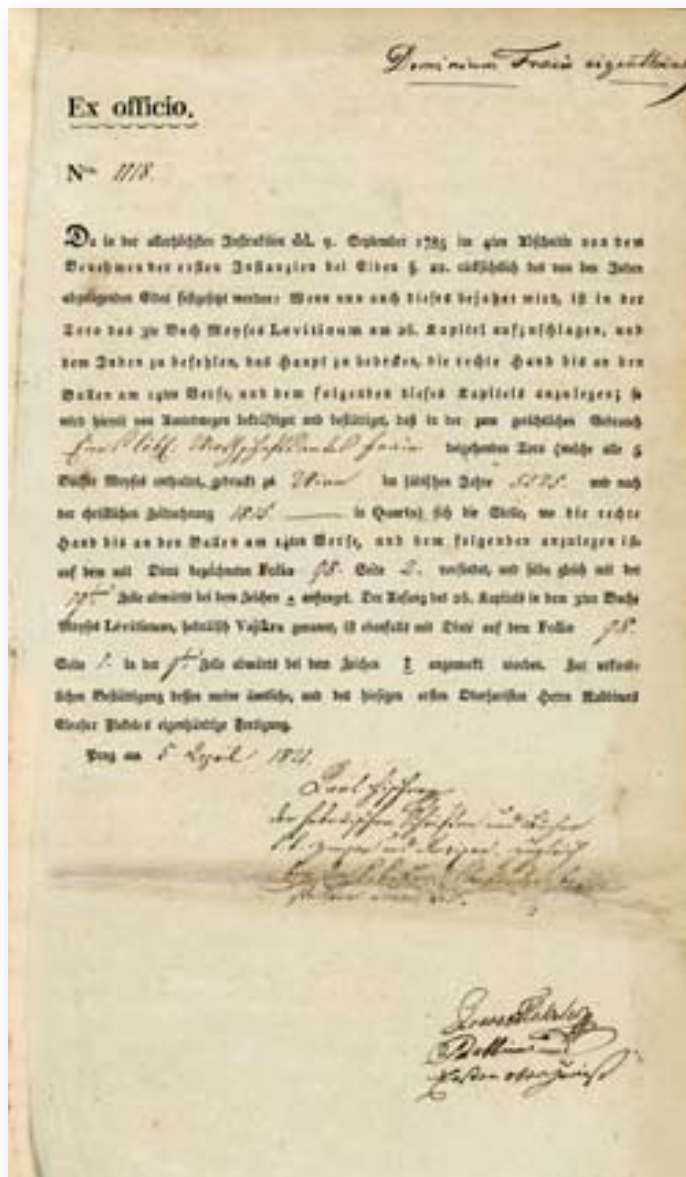 Dominium Frain
Ex officio.
Nro. 1118.
Da in der allerhöchsten Instruktion dd. 9. September 1785 im 4ten Abschnitte von dem
Benehmen der ersten Instanzien bei Eiden §. 22. rücksichtlich des von den Juden
abzulegenden Eides festgesetzt worden: Wenn nun auch dieses bejahet wird, ist in der
Tora das 3te Buch Moyses Leviticum am 26. Kapitel aufzuschlagen, und
dem Juden zu befehlen, das Haupt zu bedecken, die rechte Hand bis an den
Ballen am 14ten Verse, und dem folgenden dieses Kapitels anzulegen; so
wird hiermit von Amtswegen bekräftiget und bestättiget, daß in der zum gerichtlichen Gebrauch
Frain beigehenden Tora (welche alle 5
Bücher Moyses enthaltet, gedruckt zu Wien im jüdischen Jahre 5575. und nach
der christlichen Zeitrechnung 1815 in Quarto) sich die Stelle, wo die rechte
Hand bis an den Ballen am 14ten Verse, und dem folgenden anzulegen ist,
auf dem mit Dinte bezeichneten Folio 98. Seite 2. vorfindet, und selbe gleich mit der
Zeile abwärts bei dem Zeichen anfangt. Der Anfang des 26. Kapitels in dem 3ten Buche
Moyses Leviticum, hebräisch Vajikra genannt, ist ebenfalls mit Dinte auf dem Folio 98.
Seite 1. in der Zeile abwärts bei dem Zeichen angemerkt worden. Zur urkund-
lichen Bestättigung dessen meine ämtliche, und des hiesigen ersten Oberjuristen Herrn Rabbiners
Eleasar Fleckeles eigenhändige Fertigung.
Prag am 5 April 1821.
Carl Fischer
der hebräischen Schriften und Bücher